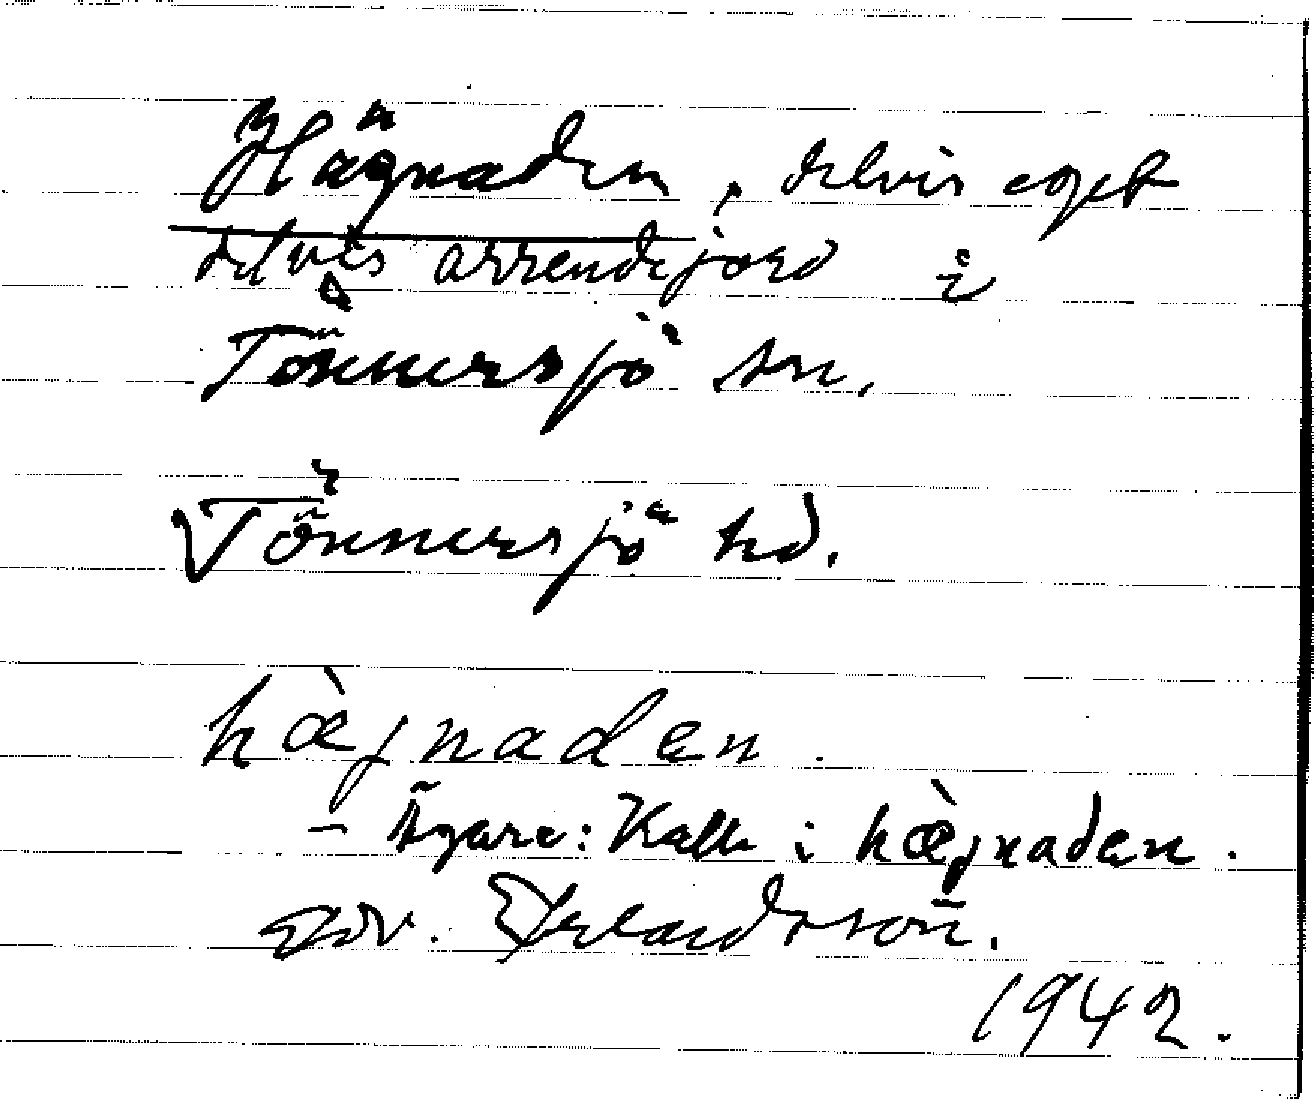 Hägnaden, delvis eget
delvis arrendejord i
Tönnersjö sn.
Tönnersjö hd.
hæ̀gnaden.
– Ägare: Kalle i hæ̀gnaden.
Edv. Erlandsson.
1942.